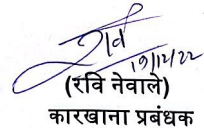 रवि
19/12/22
(रवि नेवाले)
कारखाना प्रबंधक